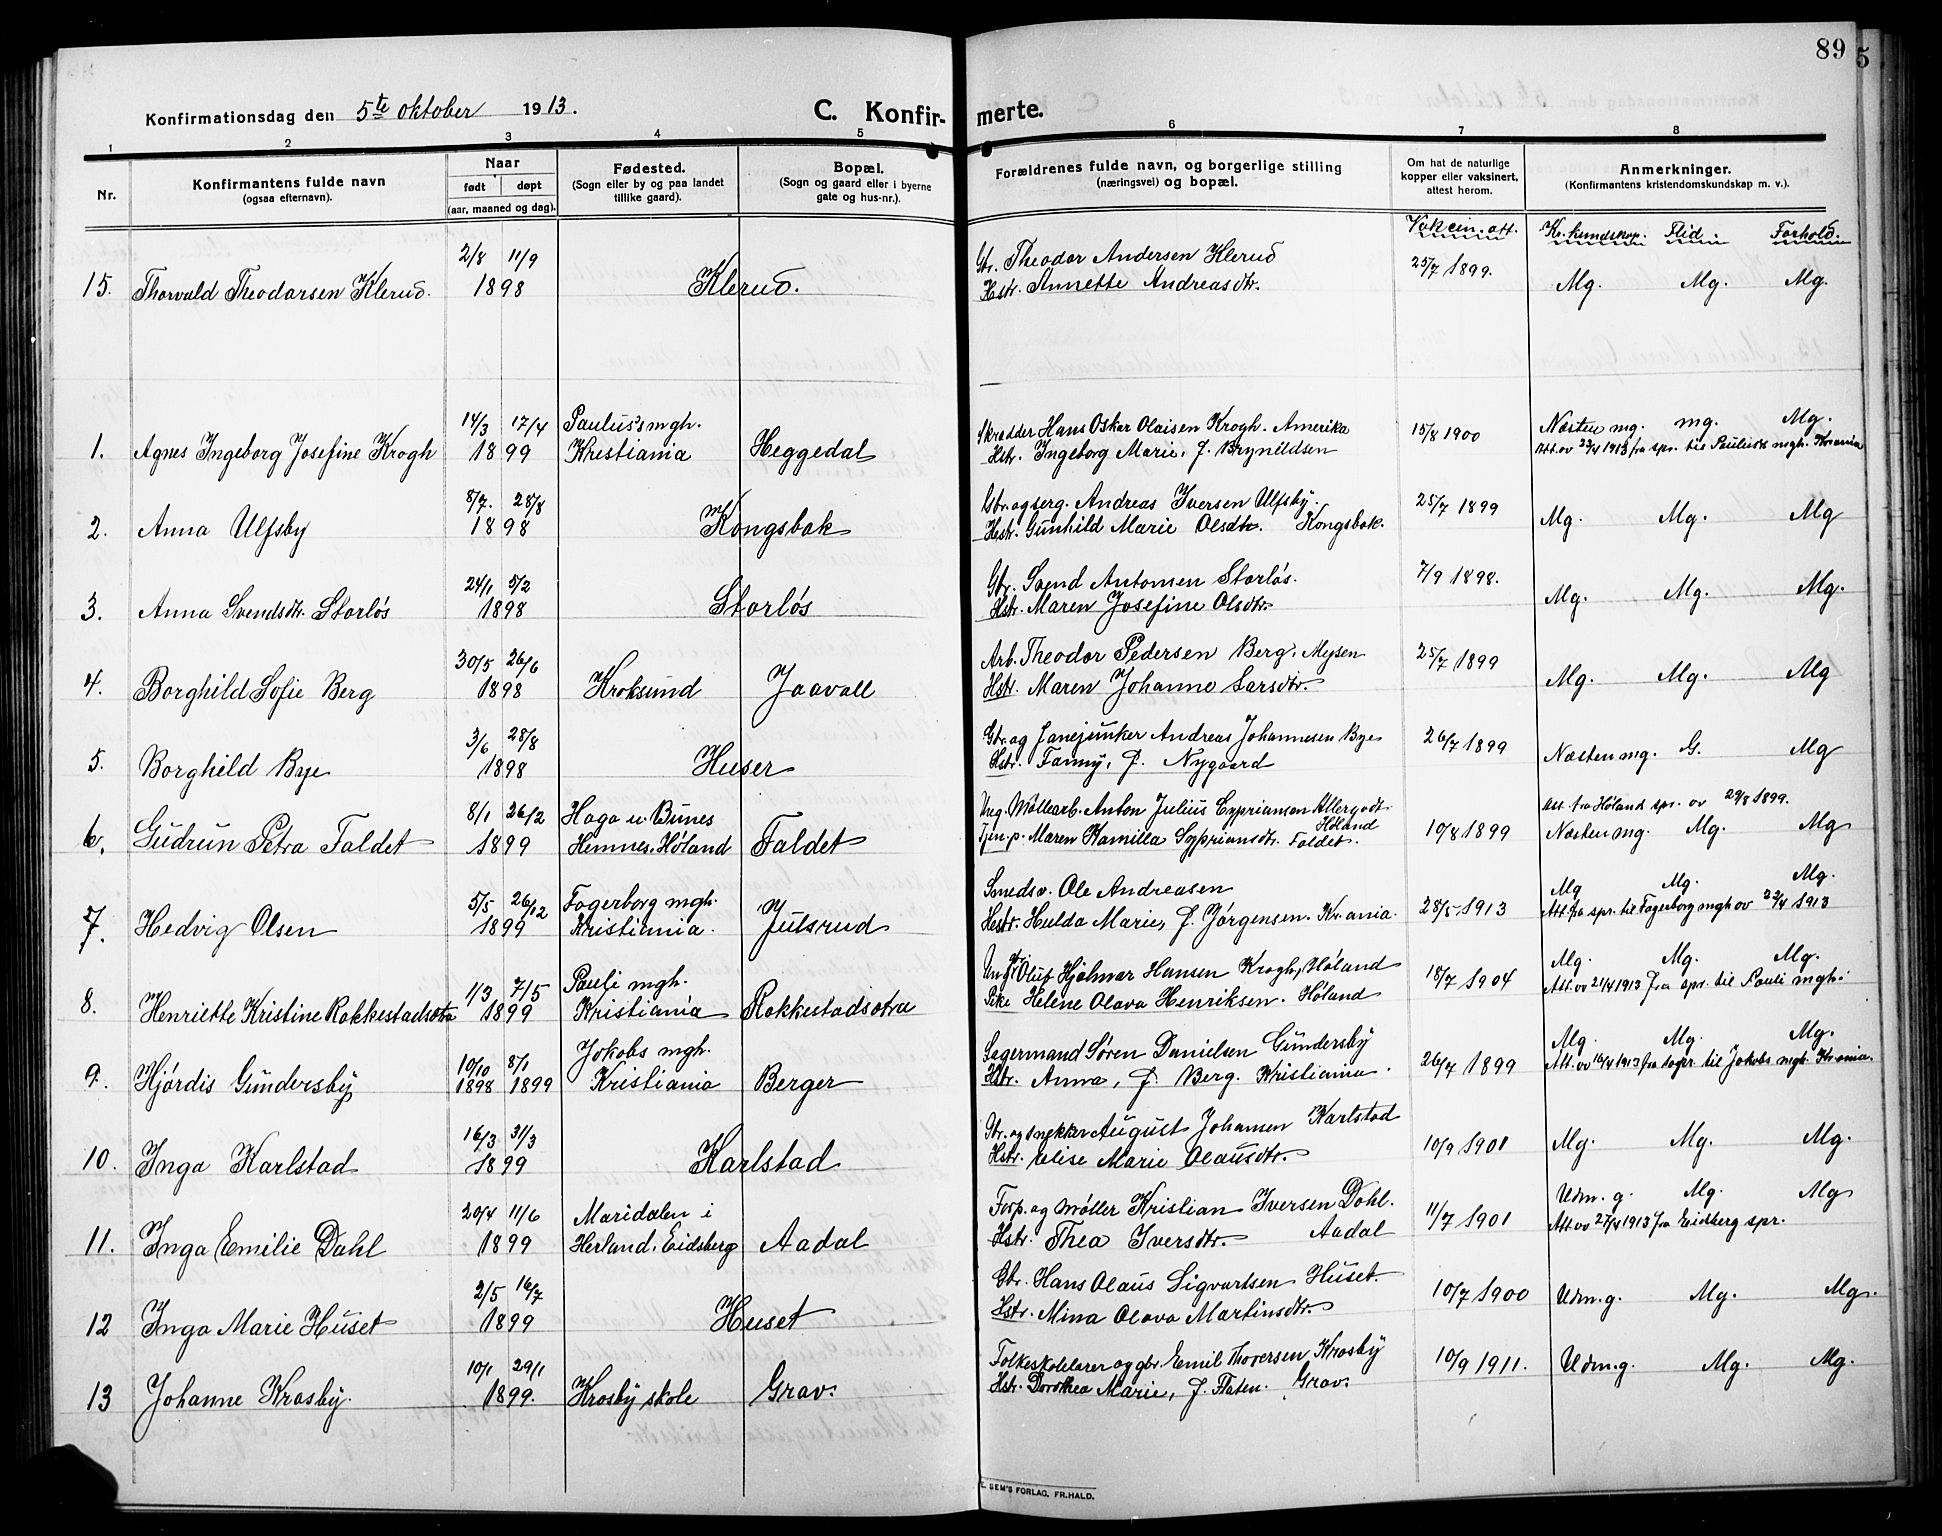 89
5
Konfirmationsdag den 5te oktober 1913.
C. Konfirmerte.
1 2 3 4 5 6 7 8
Nr.
Konfirmantens fulde navn
(ogsaa efternavn).
Naar
født døpt
(aar, maaned og dag).
Fødested.
(Sogn eller by og paa landet
tillike gaard).
Bopæl.
(Sogn og gaard eller i byerne
gate og hus-nr.).
Forældrenes fulde navn, og borgerlige stilling
(næringsvei) og bopæl.
Om hat de naturlige
kopper eller vaksinert,
attest herom.
Anmerkninger.
(Konfirmantens kristendomskundskap m. v.).
Vakcin. att. Kr. kundskap. Flid Forhold.
2/8 11/9 Gbr. Theodor Andersen Klerud
15. Thorvald Theodorsen Klerud. 1898 Klerud. Hstr. Annette Andreasdtr. 25/7 1899. Mg. Mg. Mg.
14/3 17/4 Paulus's mgh. Skrædder Hans Oskar Olaisen Krogh. Amerika 15/8 1900 Næsten mg. mg. Mg.
1. Agnes Ingeborg Josefine Krogh 1899 Kristiania Heggedal Hstr. Ingeborg Marie, f. Brynildsen Att. ov 23/4 1913 fra spr. til Paulus's mgh. Kr.ania
8/7. 28/8 Gbr. og serg. Andreas Iversen Ulfsby. 25/7 1899
2. Anna Ulfsby 1898 Kongsbak Hstr. Gunhild Marie Olsdtr. Kongsbak. Mg. Mg. Mg
24/1 5/2 Gbr. Svend Antonsen Storløs. 7/9 1898.
3. Anna Svendsdtr. Storløs 1898 Storløs Hstr. Maren Josefine Olsdtr. Mg. Mg. Mg.
30/5 26/6 Arb. Theodor Pedersen Berg. Mysen 25/7 1899
4. Borghild Sofie Berg 1898 Kroksund Jaavall Hstr. Maren Johanne Larsdtr. Mg. Mg. Mg
3/6 28/8 Gbr. og Janejunker Andreas Johannesen Bye 26/7 1899
5. Borghild Bye 1898 Huser Hstr. Fanny, f. Nygaard Næsten mg. G. Mg
8/1 26/2 Haga u. Bunes Ung. Møllearb. Anton Julius Cypriansen Allergodt. Høland Att. fra Høland spr. ov 29/8 1899.
6. Gudrun Petra Faldet 1899 Hemnes. Høland Faldet Tjen. p. Maren Kamilla Sypriansdtr. Faldet. 10/8 1899 Næsten mg. Mg. Mg
5/5 26/12 Fagerborg mgh. Smedsv. Ole Andreasen Mg Mg. Mg.
7. Hedvig Olsen 1899 Kristiania. Julsrud Hstr. Hulda Marie, f. Jørgensen. Kr.ania. 28/5 1913 Att. fra spr. til Fagerborg mgh ov 22/4 1913
1/3 7/5 Pauli mgh. Ungk. Oluf Hjalmar Hansen Krogh, Høland 18/7 1904 Mg. Mg. Mg.
8. Henriette Kristine Rakkestadsætra 1899 Kristiania Rakkestadsætra Pike Helene Olava Henriksen. Høland Att. ov 21/4 1913 fra spr. til Pauli mgh.
10/10 8/1 Jakobs mgh. Lagermand Søren Danielsen Gundersby Mg. Mg. Mg.
9. Hjørdis Gundersby 1898 1899 Kristiania Berger Hstr. Anna, f. Berg. Kristiania. 26/7 1899 Att. ov 16/4 1913 fra sogpr. til Jakobs mgh. Kr.ania.
16/3 31/3 Gbr. og snekker August Johansen Karlstad
10. Inga Karlstad 1899 Karlstad Hstr. Elise Marie Olausdtr. 10/9 1901 Mg. Mg. Mg.
20/4 11/6 Maridalen i Forp. og møller Kristian Iversen Dahl. 11/7 1901 Udm. g. Mg. Mg
11. Inga Emilie Dahl 1899 Herland. Eidsberg Aadal Hstr. Thea Iversdtr. Aadal Att. ov 27/4 1913 fra Eidsberg spr.
2/5 16/7 Gbr. Hans Olaus Sigvartsen Huset.
12 Inga Marie Huset 1899 Huset Hstr. Mina Olava Martinsdtr. 10/7 1900 Udm. g. Mg. Mg.
10/1 29/1 Folkeskolelærer og gbr. Emil Thoresen Krosby 10/9 1911. Udm. g. Mg. Mg.
13 Johanne Krosby. 1899. Krosby skole Grav. Hstr. Dorothea Marie, f. Flaten. Grav.
E. SEM'S FORLAG, FR.HALD.